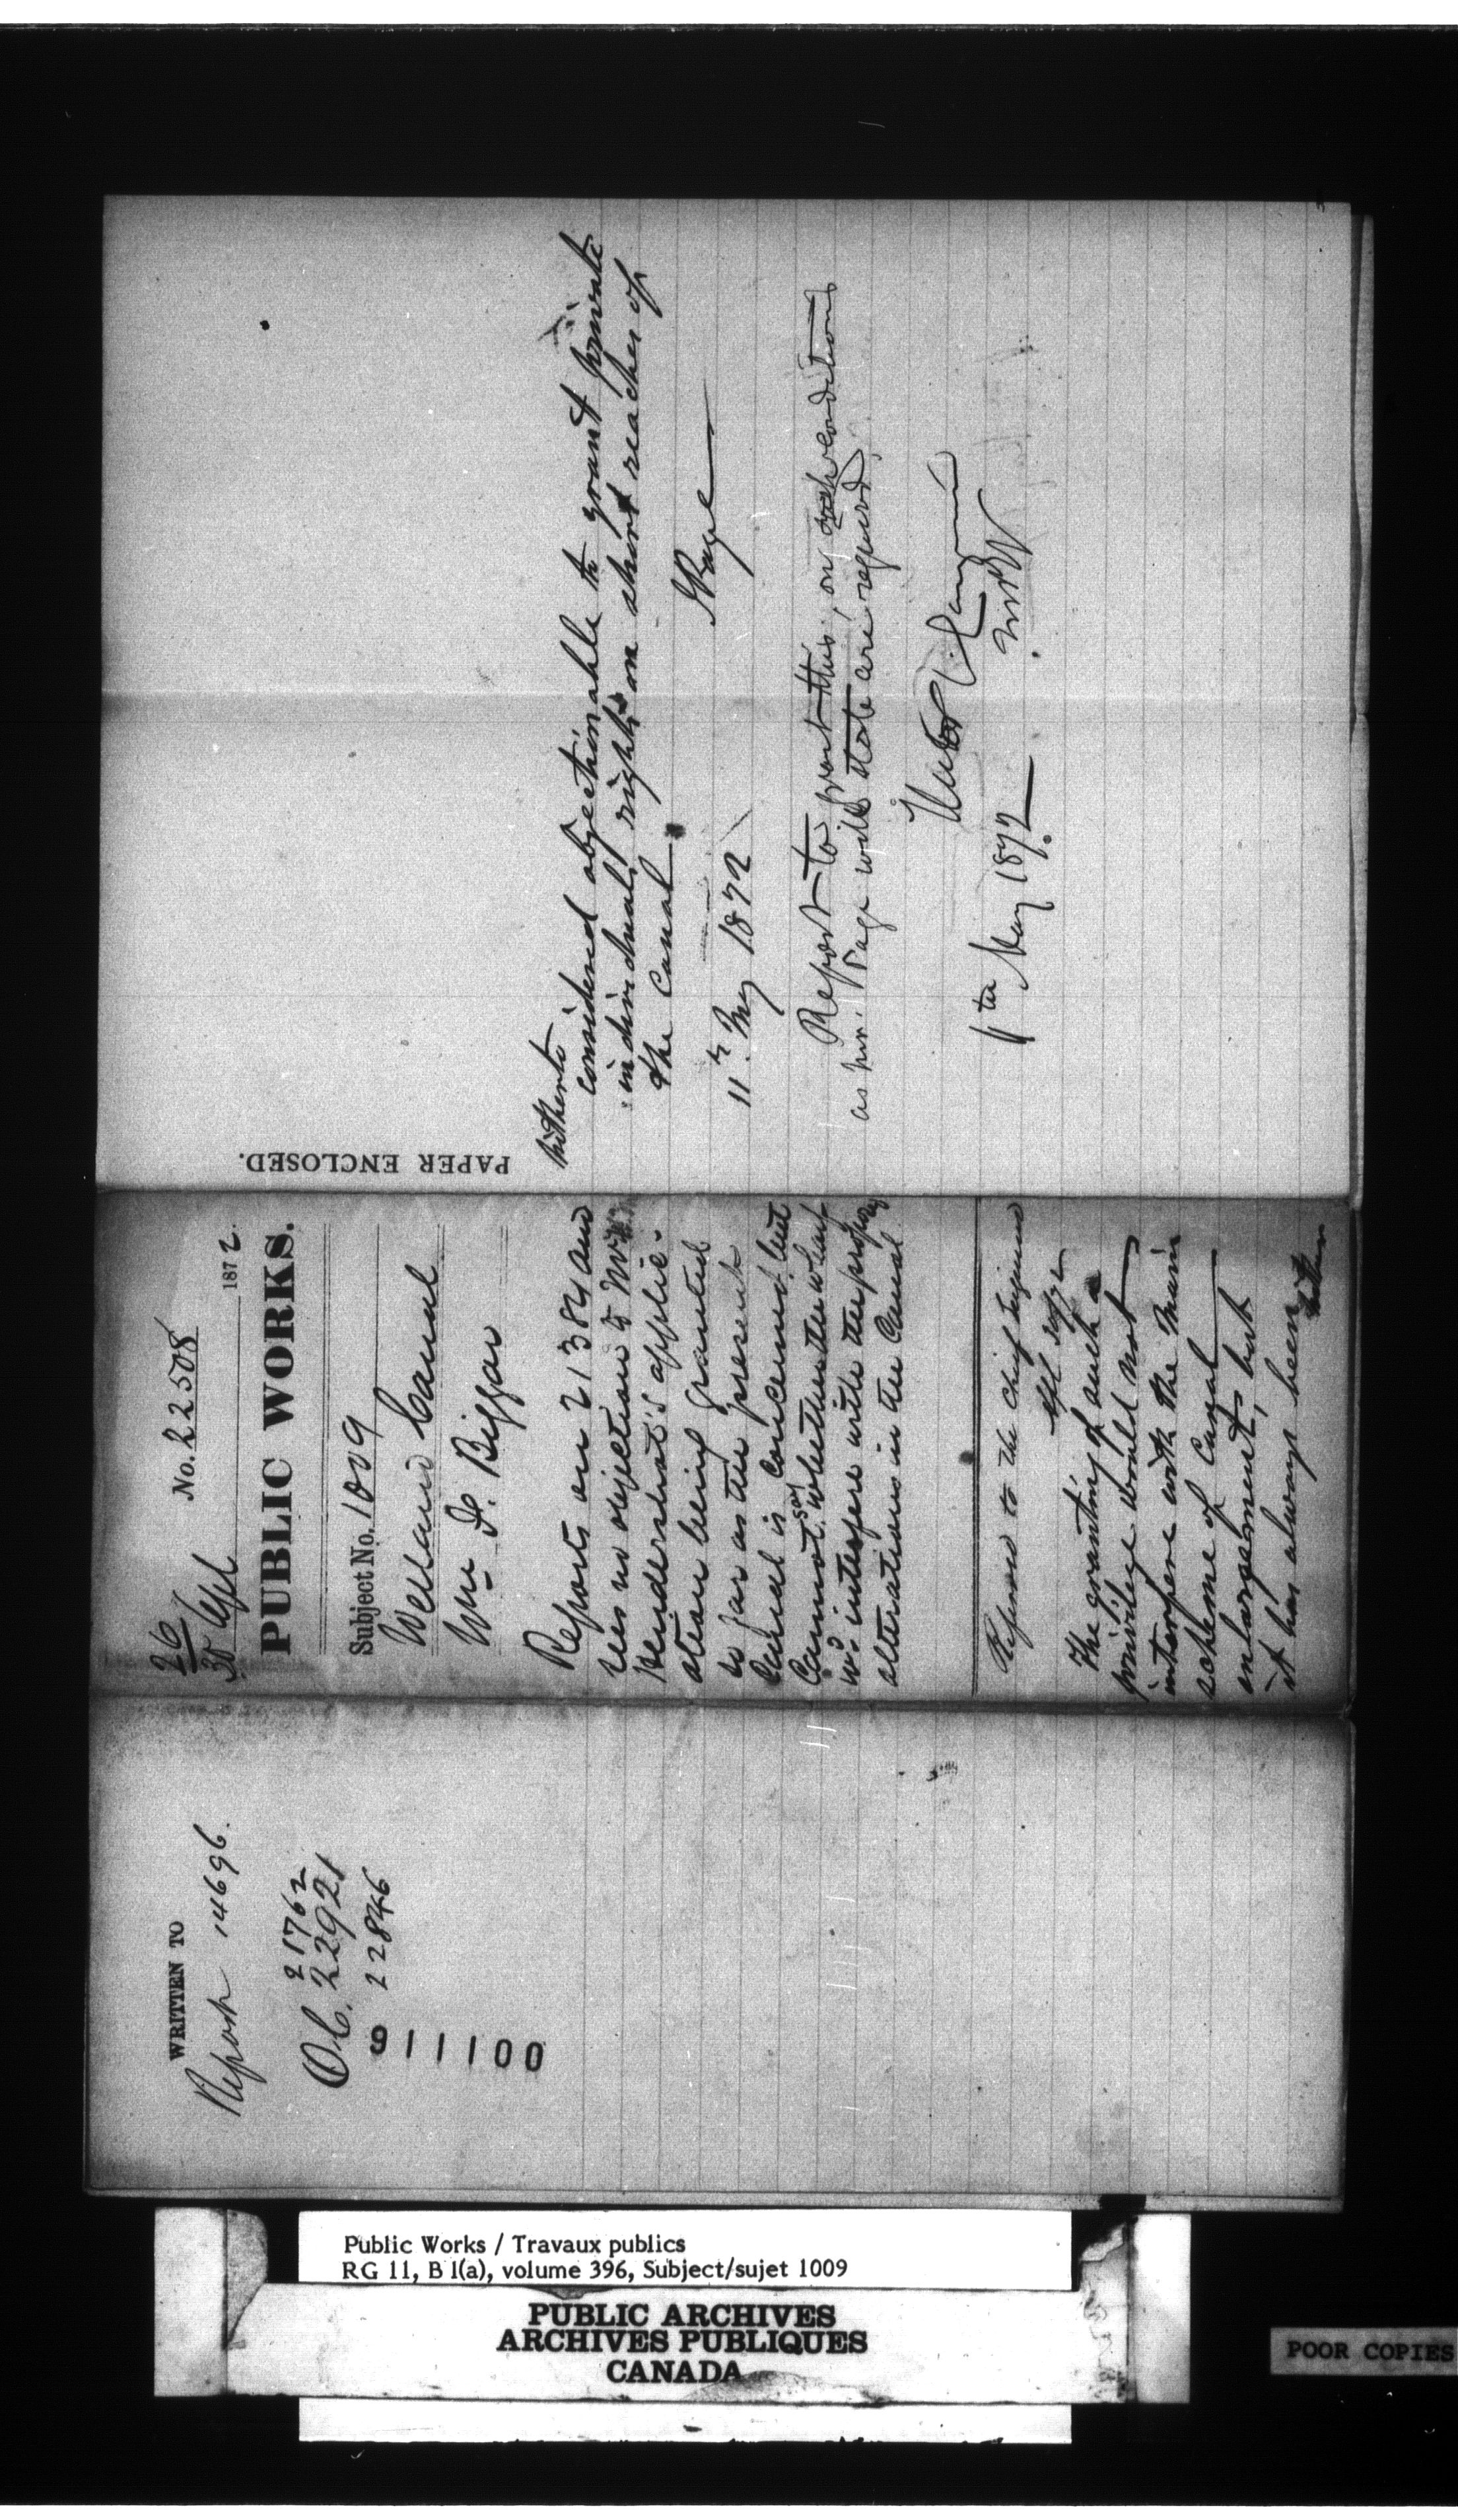 WRITTEN TO
Report 14696.
21762
O.C. 22921
22846
911100
26
30 Apl
No. 22508
1872
PUBLIC WORKS.
Subject No. 1009
Welland Canal
Wm. F. Biggar
Reports on 21384 and
sees no objection to Mr.
Hendershot's applic-
ation being granted
so far as the present
Canal is concerned but
Cannot say whether the wharf
wd. interfere with the proposed
alterations in the Canal
Referred to the Chief Engineer
The granting of such a
privilege would not
interfere with the Main
scheme of Canal
enlargement, but
it has always been
hitherto
PAPER ENCLOSED.
hitherto
considered objectionable to grant private
individuals rights on short reaches of
the Canal.
J Page
11th. May 1872
Report to grant this, on such conditions
as Mr. Page will state are required.
Hector L. Langevin
MPW
11th May 1872.
Public Works / Travaux publics
RG 11, B 1(a), volume 396, Subject/sujet 1009
PUBLIC ARCHIVES
ARCHIVES PUBLIQUES
CANADA
POOR COPIES